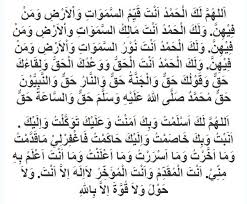 اَللّٰهُمَّ لَكَ الْحَمْدُ اَنْتَ قَيِّمُ السَّمٰوَاتِ وَاْلاَرْضِ وَمَنْ
فِيْهِنَّ. وَلَكَ الْحَمْدُ اَنْتَ مَالِكُ السَّمٰوَاتِ وَاْلاَرْضِ وَمَنْ
فِيْهِنَّ. وَلَكَ الْحَمْدُ اَنْتَ نُوْرُ السَّمٰوَاتِ وَاْلاَرْضِ وَمَنْ
فِيْهِنَّ. وَلَكَ الْحَمْدُ اَنْتَ الْحَقُّ وَوَعْدُكَ الْحَقُّ وَلِقَاءُكَ
حَقٌّ وَقَوْلُكَ حَقٌّ وَالْجَنَّةُ حَقٌّ وَالنَّارُ حَقٌّ وَالنَّبِيُّوْنَ
حَقٌّ مُحَمَّدٌ صَلَّى اللهُ عَلَيْهِ وَسَلَّمَ حَقٌّ وَالسَّاعَةُ حَقٌّ
اَللّٰهُمَّ لَكَ اَسْلَمْتُ وَبِكَ اٰمَنْتُ وَعَلَيْكَ تَوَكَّلْتُ وَاِلَيْكَ
اَنَبْتُ وَبِكَ خَاصَمْتُ وَاِلَيْكَ حَاكَمْتُ فَاغْفِرْلِيْ مَاقَدَّمْتُ
وَمَا اَخَّرْتُ وَمَا اَسْرَرْتُ وَمَا اَعْلَنْتُ وَمَا اَنْتَ اَعْلَمُ بِهِ
مِنِّيْ. اَنْتَ الْمُقَدِّمُ وَاَنْتَ الْمُؤَخِّرُ لاَاِلٰهَ اِلاَّ اَنْتَ. وَلاَ
حَوْلَ وَلاَ قُوَّةَ اِلاَّ بِاللهِ